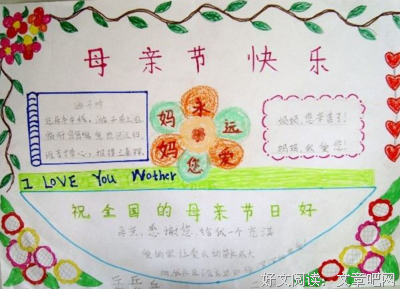 母亲节快乐
游子吟
慈母手中线，游子身上衣。
临行密密缝，意恐迟迟归。
谁言寸草心，报得三春晖。
妈 永 远
妈 您 爱
妈妈，您辛苦了！
妈妈，我爱您！
I LOVE You Mother
祝全国的母亲节日好
感谢您，给我一个充满
好文阅读：文章吧网